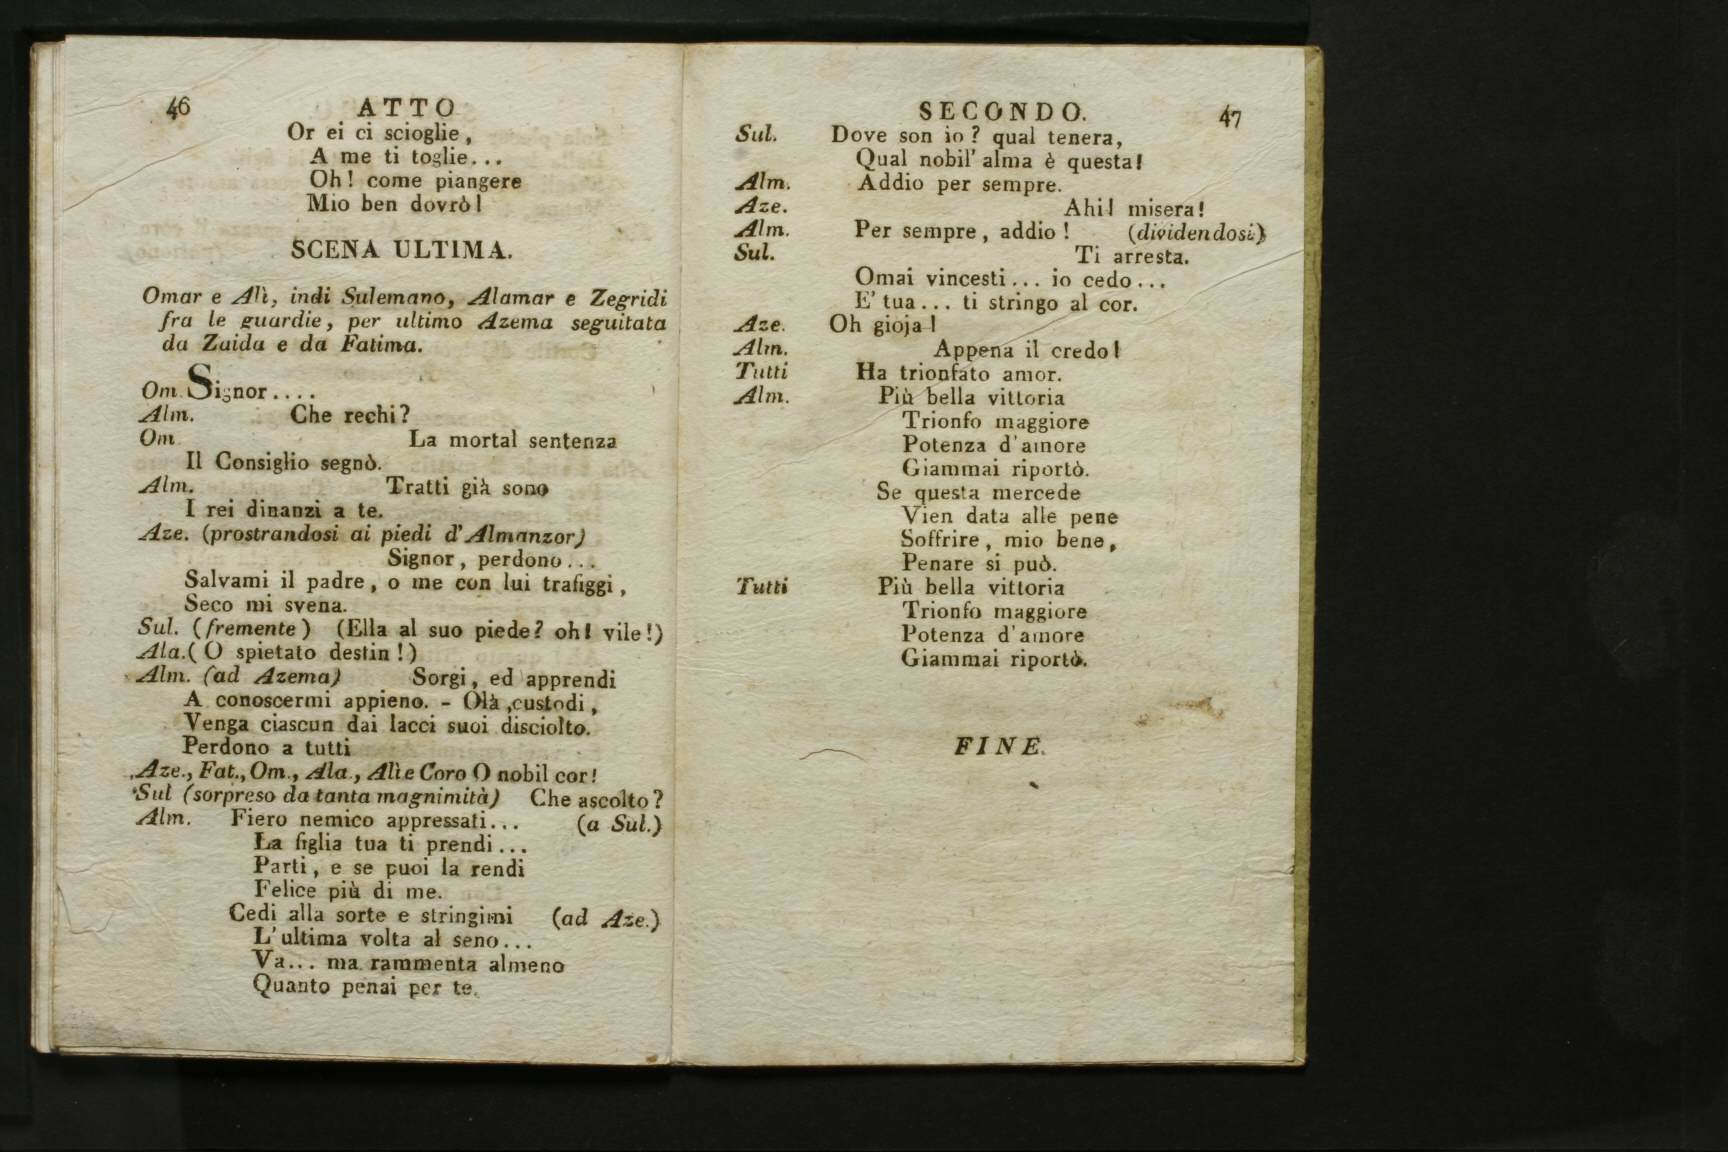 46 ATTO
Or ei ci scioglie,
A me ti toglie...
Oh! come piangere
Mio ben dovrò!
SCENA ULTIMA.
Omar e Alì, indi Sulemano, Alamar e Zegridi
fra le guardie, per ultimo Azema seguitata
da Zaida e da Fatima.
Om. Signor....
Alm. Che rechi?
Om. La mortal sentenza
Il Consiglio segnò.
Alm. Tratti già sono
I rei dinanzi a te.
Aze. (prostrandosi ai piedi d'Almanzor)
Signor, perdono...
Salvami il padre, o me con lui trafiggi,
Seco mi svena.
Sul. (fremente) (Ella al suo piede? oh! vile!)
Ala. (O spietato destin!)
Alm. (ad Azema) Sorgi, ed apprendi
A conoscermi appieno. - Olà, custodi,
Venga ciascun dai lacci suoi disciolto.
Perdono a tutti
Aze., Fat., Om., Ala., Alì e Coro O nobil cor!
Sul (sorpreso da tanta magnimità) Che ascolto?
Alm. Fiero nemico appressati... (a Sul.)
La figlia tua ti prendi...
Parti, e se puoi la rendi
Felice più di me.
Cedi alla sorte e stringimi (ad Aze.)
L'ultima volta al seno...
Va... ma rammenta almeno
Quanto penai per te.
SECONDO. 47
Sul. Dove son io? qual tenera,
Qual nobil' alma è questa!
Alm. Addio per sempre.
Aze. Ahi! misera!
Alm. Per sempre, addio! (dividendosi)
Sul. Ti arresta.
Omai vincesti... io cedo...
E' tua... ti stringo al cor.
Aze. Oh gioja!
Alm. Appena il credo!
Tutti Ha trionfato amor.
Alm. Più bella vittoria
Trionfo maggiore
Potenza d'amore
Giammai riportò.
Se questa mercede
Vien data alle pene
Soffrire, mio bene,
Penare si può.
Tutti Più bella vittoria
Trionfo maggiore
Potenza d'amore
Giammai riportò.
FINE.